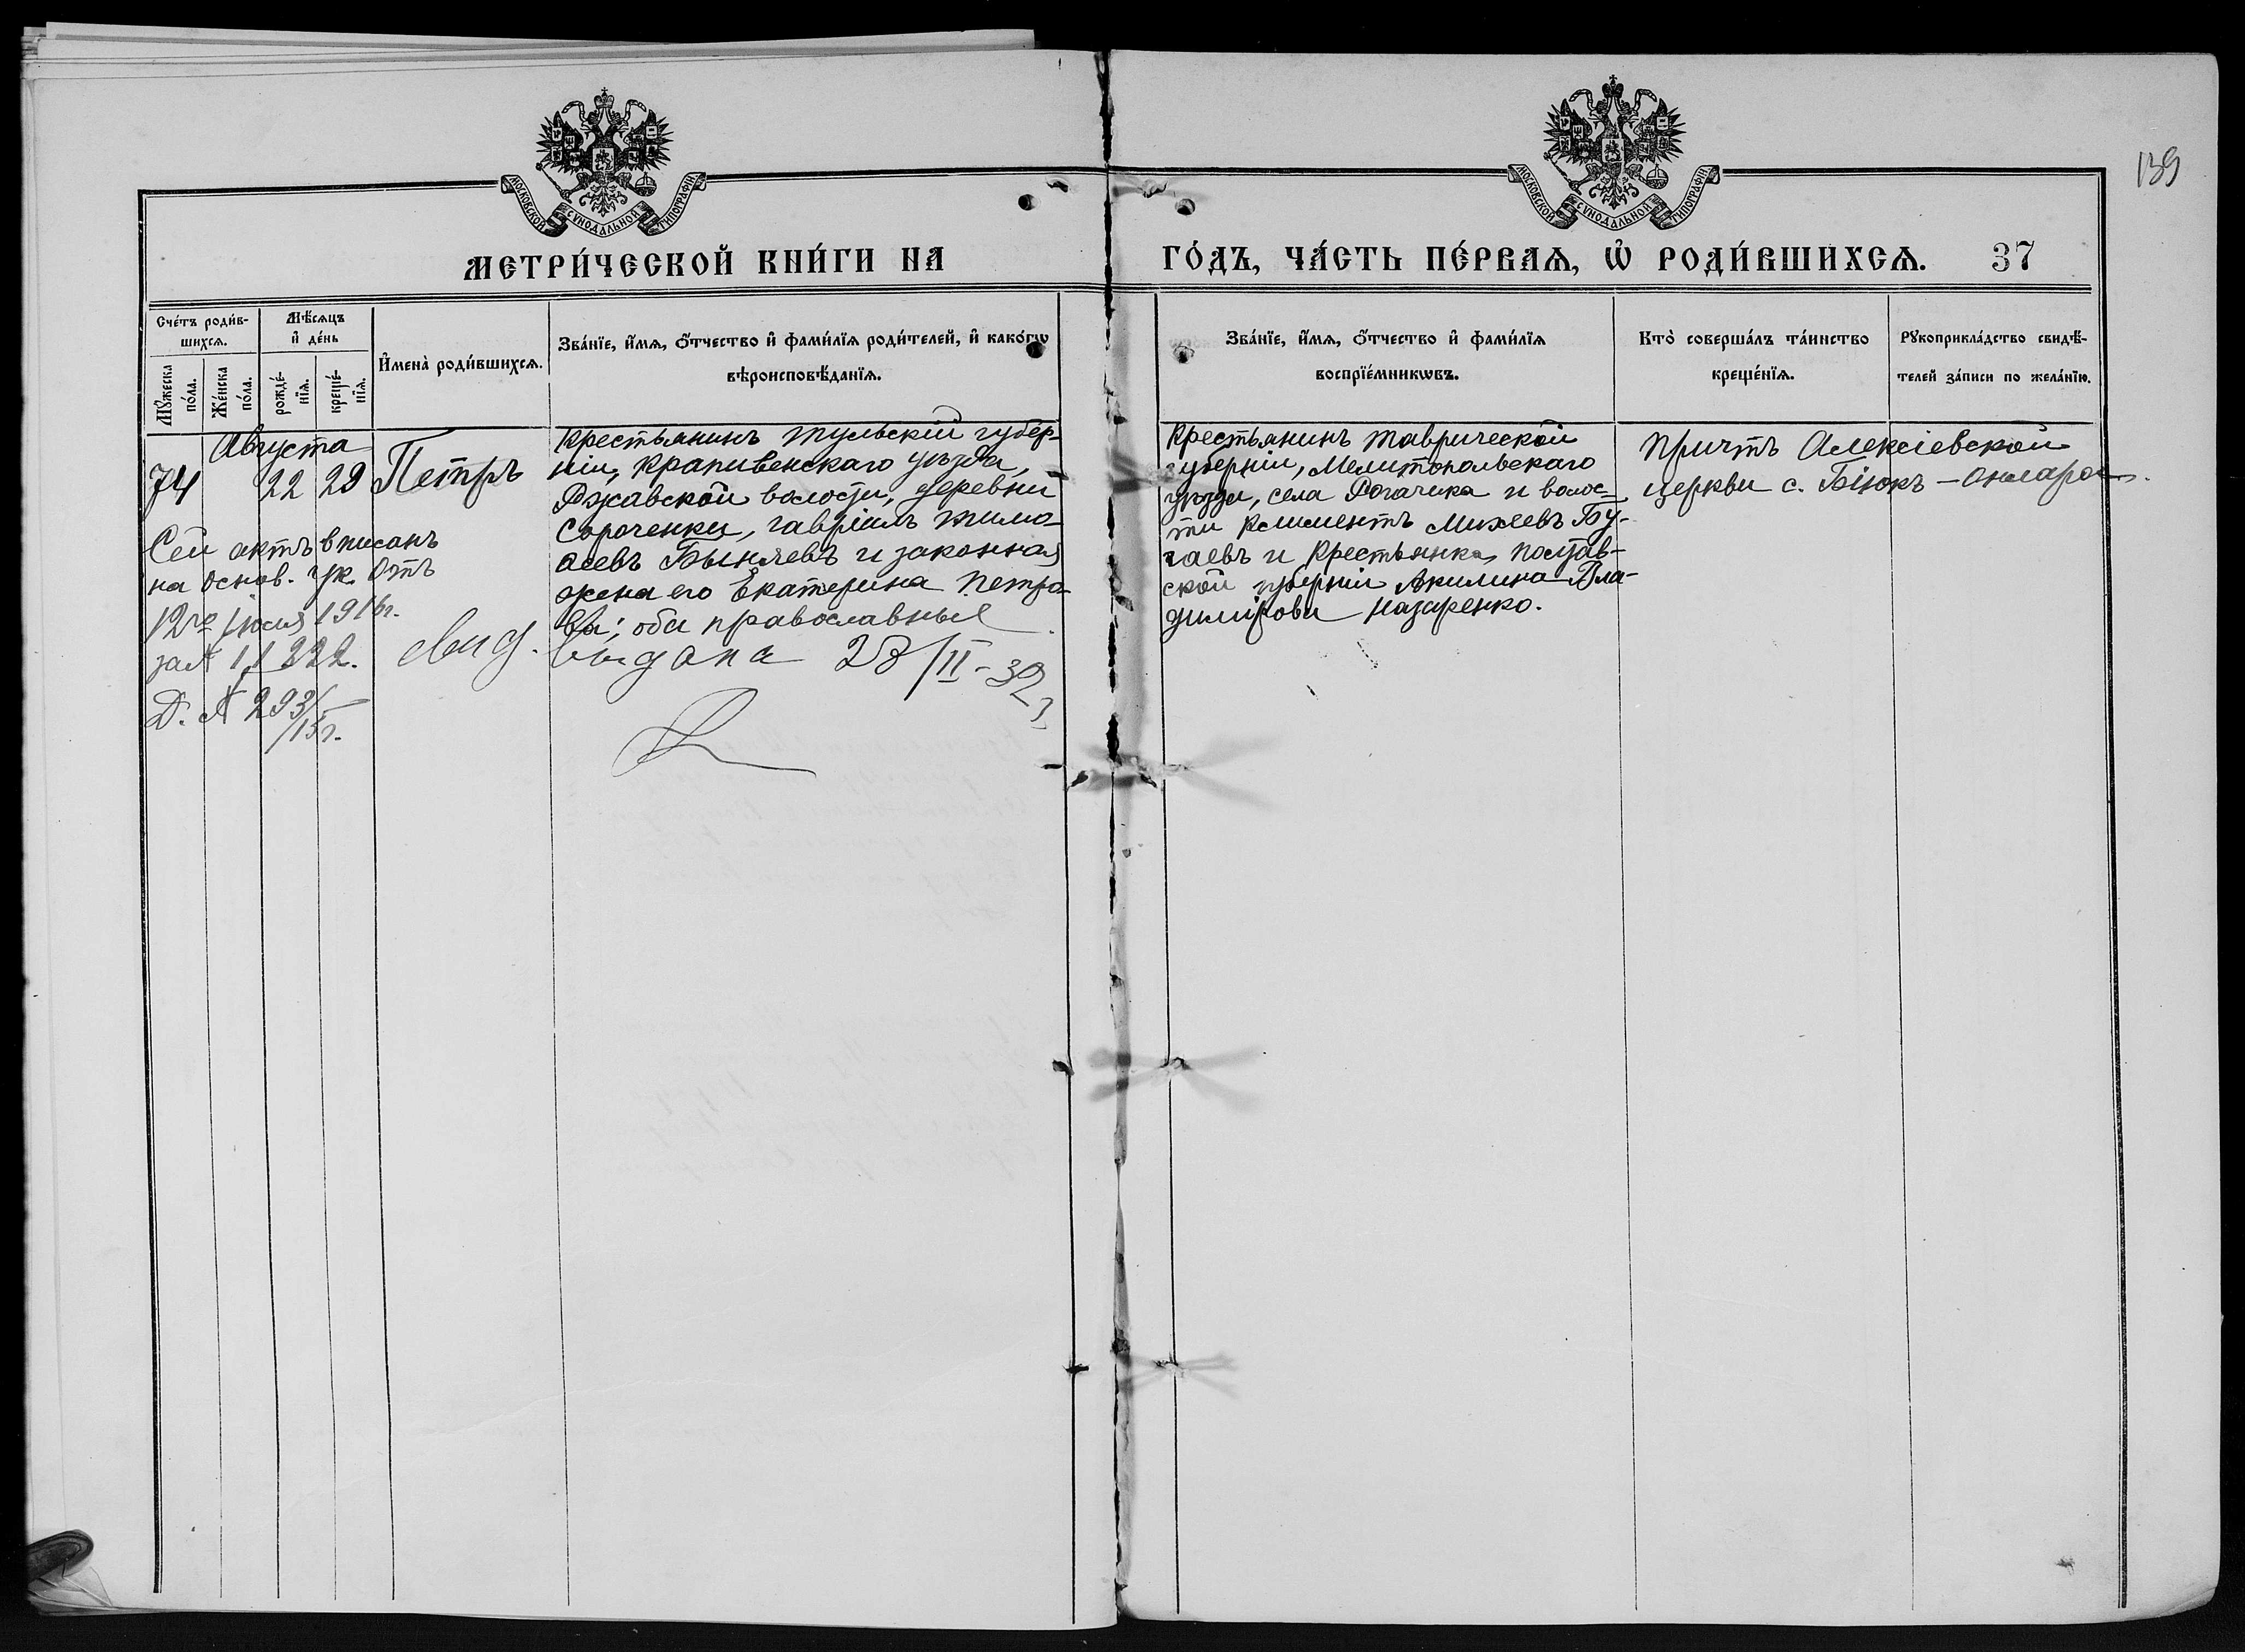 139
МОСКОВСКОЙ СѴНОДАЛЬНОЙ ТИПОГРАФІИ
МОСКОВСКОЙ СѴНОДАЛЬНОЙ ТИПОГРАФІИ
МЕТРИ́ЧЕСКОЙ КНИ́ГИ НА
ГО́ДЪ, ЧА́СТЬ ПЕ́РВАѦ, Ѡ҆ РОДИ́ВШИХСѦ. 37
Сче́тъ роди́в-
шихсѧ.
Мꙋ́жеска
по́ла.
Же́нска
по́ла.
Мѣ́сѧцъ
и҆ де́нь
рожде́-
нїѧ.
креще́-
нїѧ.
И҆мена̀ роди́вшихсѧ.
Зва́нїе, и҆́мѧ, ѻ҆́тчество и҆ фами́лїѧ роди́телей, и҆ како́гѡ
вѣроисповѣ́данїѧ.
Зва́нїе, и҆́мѧ, ѻ҆́тчество и҆ фами́лїѧ
воспрїе́мникѡвъ.
Кто̀ соверша́лъ та́инство
креще́нїѧ.
Рꙋкоприкла́дство свидѣ́-
телей за́писи по жела́нїю.
Августа
74 22 29 Петръ
Крестьянинъ Тульской губер-
ніи, Крапивенскаго уѣзда,
Ржавской волости, деревни
Сороченки, Гавріилъ Тимо-
аеевъ Быняевъ и законная
жена его Екатерина Петро-
ва; оба православные
Крестьянинъ Таврической
губерніи, Мелитопольскаго
уѣзда, села Рогачика и волос-
ти Климентъ Михеевъ Бу-
гаевъ и Крестьянка Полтав-
ской губерніи Акилина Вла-
димірова Назаренко.
Причтъ Алексіевской
церкви с. Біюкъ-Онларъ
Сей актъ вписанъ
на основ. ук. отъ
12го Іюля 1916г.
за № 11222.
Д. № 293/
/15г.
Свид. выдана 28/II-32